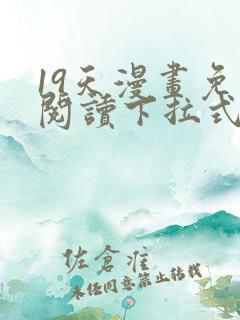 19天漫畫免
閱讀下拉式
佐倉淮
未经同意禁止转载